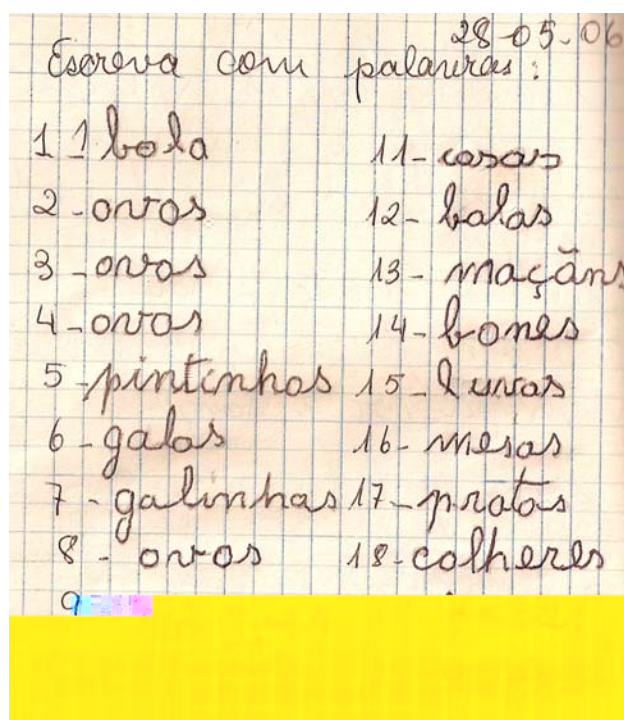 28-05-06
Escreva com palavras:
1 1 bola
2-ovos
3-ovos
4-ovos
5-pintinhos
6-galos
7-galinhas
8-ovos
9
11-casas
12-balas
13-maçãns
14-bones
15-luvas
16-mesas
17-pratos
18-colheres